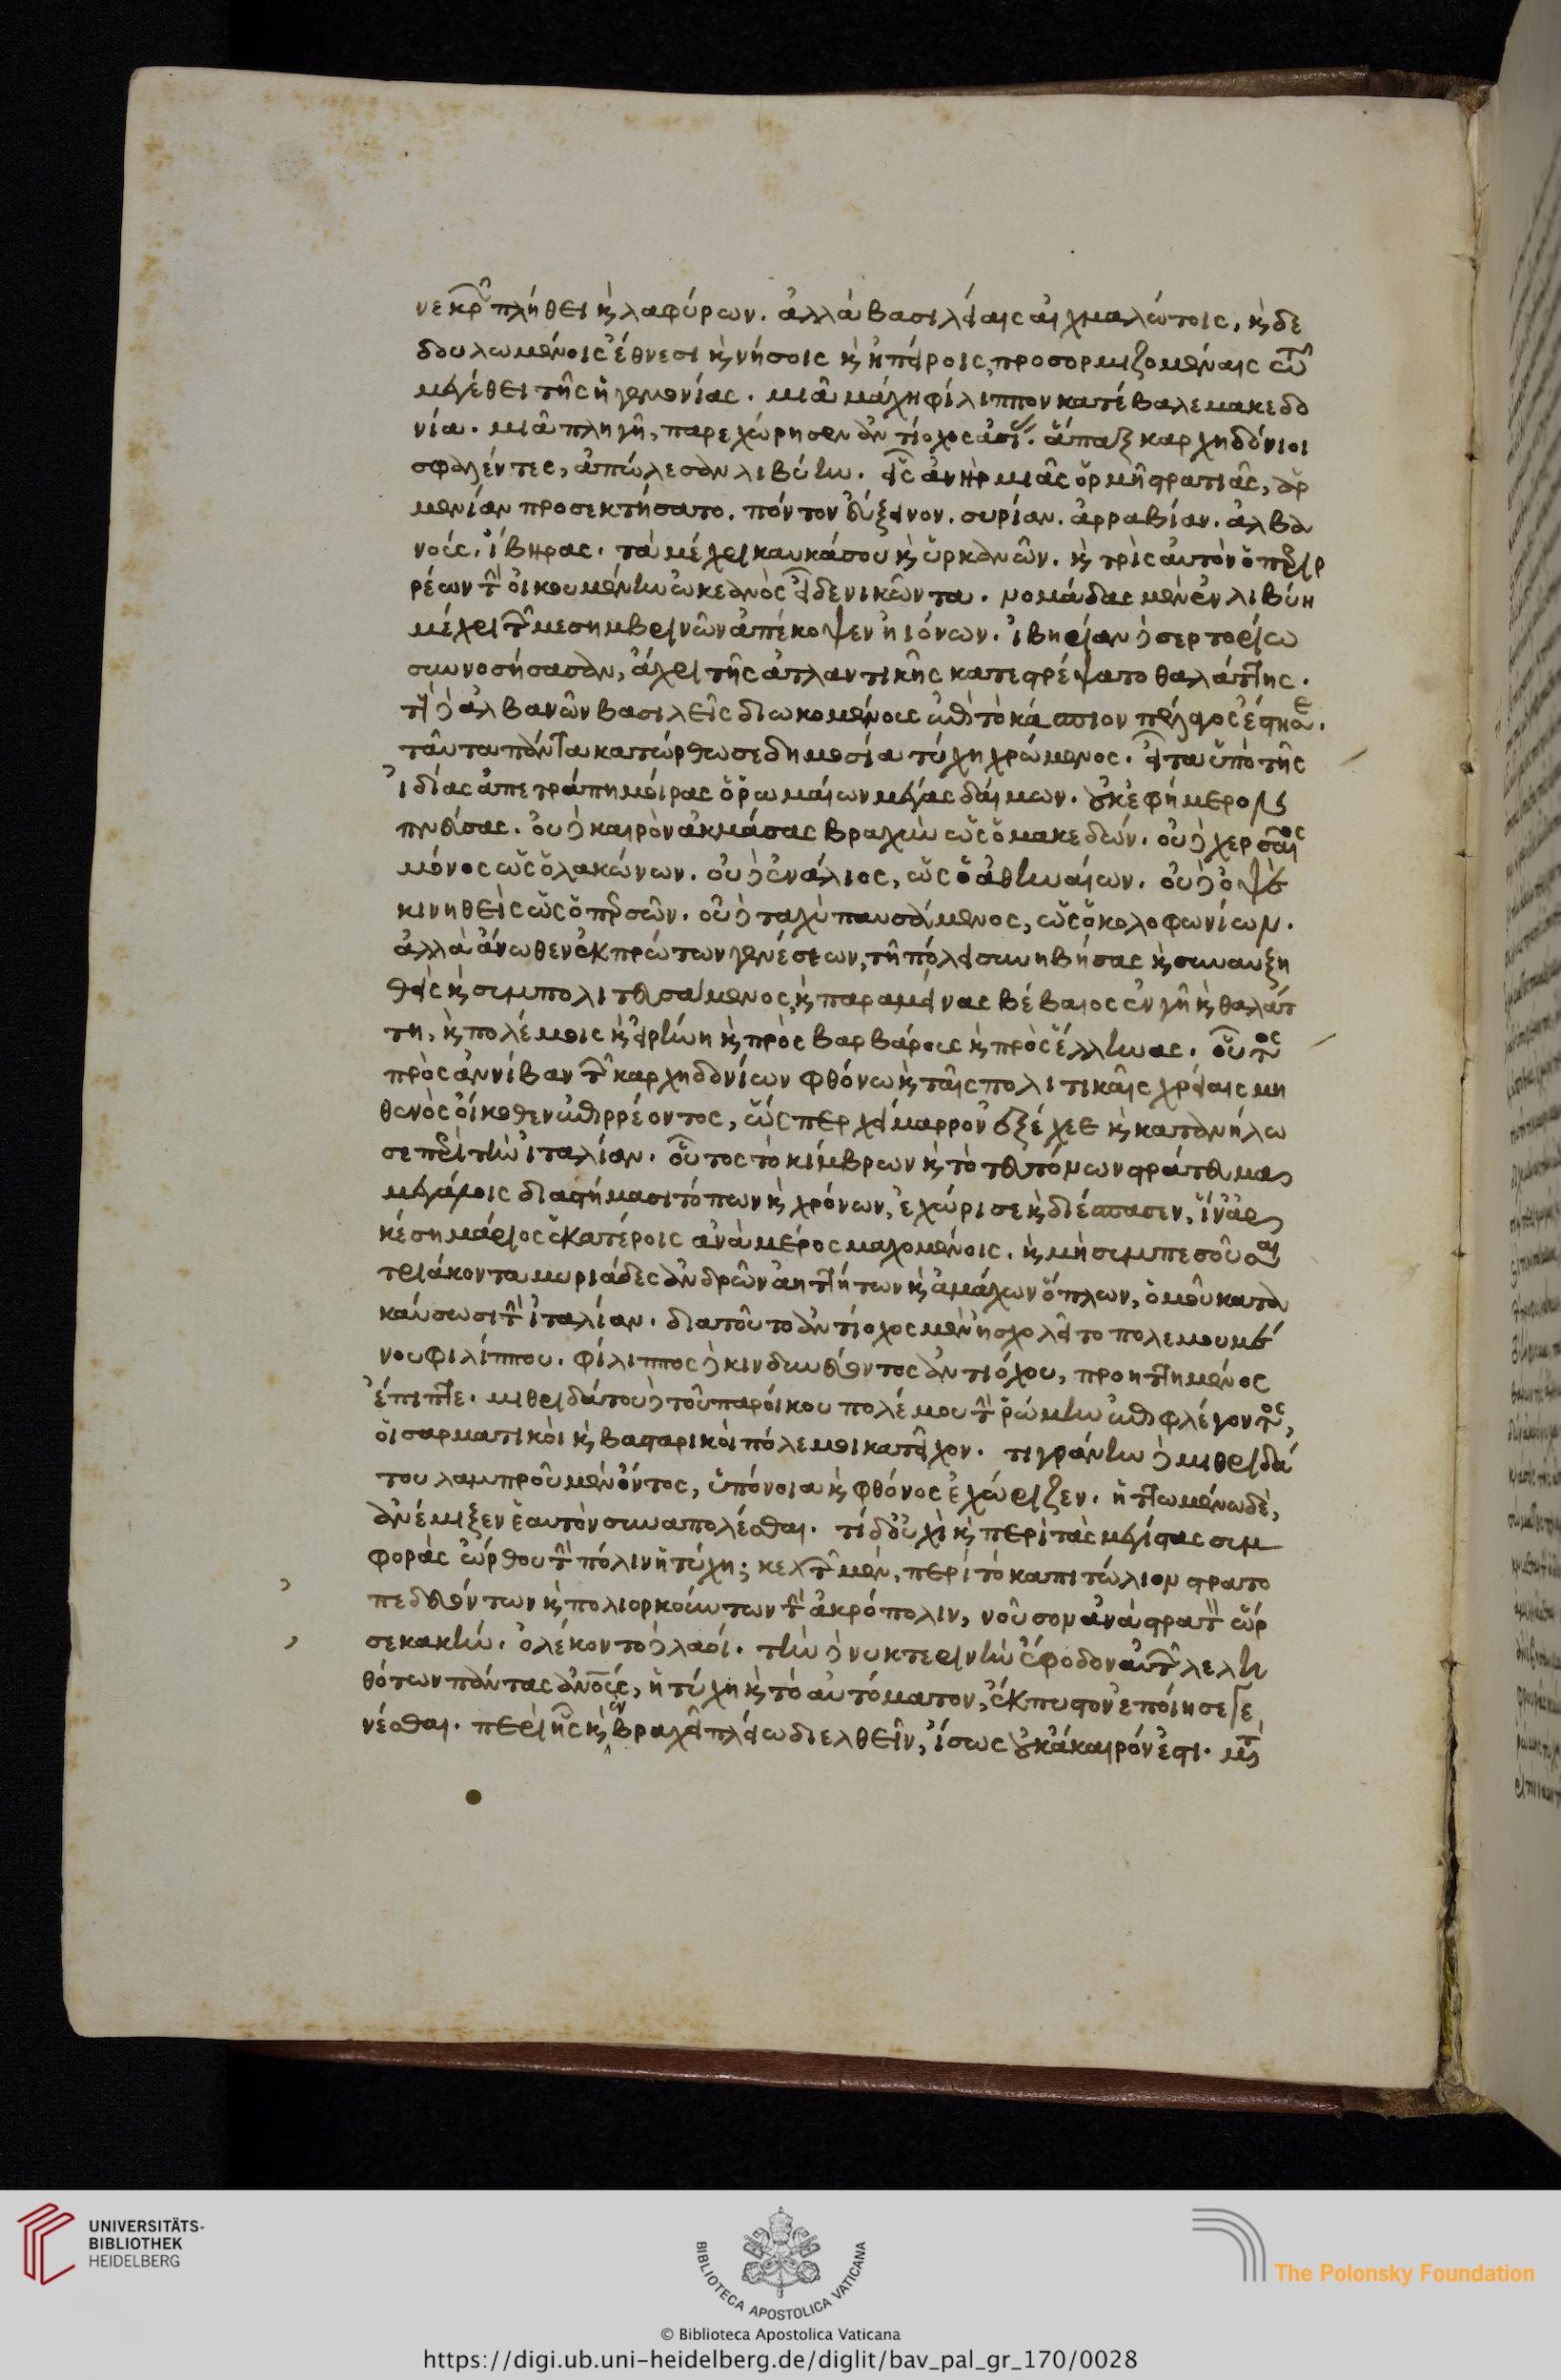 νεκρῶν πλήθει κ λαφύρων. ἀλλὰ βασιλείαις αἰχμαλώτοις, κ δε
δουλωμένοις ἔθνεσι κ νήσοις κ ἠπείροις, προσοριζομέναις τῶ
μεγέθει τῆς ἡγεμονίας. μιᾶ μάχη φίλιππον κατέβαλε μακεδο
νία. μιᾶ πληγῆ, παρεχώρησεν ἀντίοχος ἀσίας. ἅπαξ καρχηδόνιοι
σφαλέντες, ἀπώλεσαν λιβύην. εἷς ἀνὴρ μιᾶς ὁρμῆ στρατιᾶς, ἀρ
μενίαν προσεκτήσατο. πόντον εὔξεινον. συρίαν. ἀρραβίαν. ἀλβα
νούς. ἴβηρας. τὰ μέχρι καυκάσου κ ὑρκανῶν. κ τρὶς αὐτὸν ὁ περιρ
ρέων τὴν οἰκουμένην ὠκεανὸς εἶδε νικῶντα. νομάδας μὲν ἐν λιβύη
μέχρι τῶν μεσημβρινῶν ἀπέκοψεν ἠιόνων. ἰβηρίαν δὲ σερτορίω
συννοσήσασαν, ἄχρι τῆς ἀτλαντικῆς κατεστρέψατο θαλάττης.
τοὺς δὲ ἀλβανῶν βασιλεῖς διωκομένους ἐπὶ τὸ κάσπιον πέλαγος ἔστησε.
ταῦτα πάντα κατώρθωσε δημοσία τύχη χρώμενος. εἶτα ὑπὸ τῆς
ἰδίας ἀπετράπη μοίρας ὁ ῥωμαίων μέγας δαίμων. οὐκ ἐφήμερον
πνεύσας. οὐδὲ καιρὸν ἀκμάσας βραχὺν ὡς ὁ μακεδών. οὐδὲ χερσαῖος
μόνος ὡς ὁ λακώνων. οὐδὲ ἐνάλιος, ὡς ὁ ἀθηναίων. οὐδὲ ὀψὲ
κινηθεὶς ὡς ὁ περσῶν. οὐδὲ ταχὺ παυσάμενος, ὡς ὁ κολοφωνίων.
ἀλλὰ ἄνωθεν ἐκ πρώτων γενέσεων, τῆ πόλει συνηβήσας κ συναυξη
θεὶς κ συμπολιτευσάμενος, κ παραμείνας βέβαιος ἐν γῆ κ θαλάτ
τη, κ πολέμοις κ εἰρήνη κ πρὸς βαρβάρους κ πρὸς ἕλληνας. οὗτος
πρὸς ἀννίβαν τῶν καρχηδονίων φθόνω κ ταῖς πολιτικαῖς χρείαις μη
θενὸς οἴκοθεν ἐπιρρέοντος, ὥσπερ χείμαρρον ἐξέχεε κ κατανήλω
σε περὶ τὴν ἰταλίαν. οὗτος τὸ κίμβρων κ τὸ τευτόνων στράτευμα
μεγάλοις διαστήμασι τόπων κ χρόνων, ἐχώρισε κ διέσπασεν, ἵν ἀρ
κέση μάριος ἑκατέροις ἀνὰ μέρος μαχομένοις. κ μὴ συμπεσοῦσαι
τριάκοντα μυριάδες ἀνδρῶν ἀηττήτων κ ἀμάχων ὅπλων, ὁμοῦ κατα
καύσωσι τὴν ἰταλίαν. διατοῦτο ἀντίοχος μὲν ἠσχολεῖτο πολεμουμέ
νου φιλίππου. φίλιππος δὲ κινδυνεύοντος ἀντιόχου, προηττημένος
ἔπιπτε. μιθριδάτου δὲ τοῦ παροίκου πολέμου τὴν ῥώμην ἐπιφλέγοντος,
οἱ σαρματικοὶ κ βασταρικοὶ πόλεμοι κατεῖχον. τιγράνην δὲ μιθριδά
του λαμπροῦ μὲν ὄντος, ὑπόνοια κ φθόνος ἐχώριζεν. ἡττωμένω δὲ,
ἀνέμιξεν ἑαυτὸν συναπολέσθαι. τί δ οὐχὶ κ περὶ τὰς μεγίστας συμ
φορὰς ὤρθου τὴν πόλιν ἡ τύχη; κελτῶν μὲν, περὶ τὸ καπιτώλιον στρατο
πεδευόντων κ πολιορκούντων τὴν ἀκρόπολιν, νοῦσον ἀνὰ στρατὸν ὦρ
σε κακὴν. ὀλέκοντο δὲ λαοί. τὴν δὲ νυκτερινὴν ἔφοδον αὐτῶν λελη
θότων πάντας ἀνοὺς, ἡ τύχη κ τὸ αὐτόματον, ἔκπυστον ἐποίησε γε
νέσθαι. περὶ ἧς κ ἐν βραχεῖ πλείω διελθεῖν, ἴσως οὐκ ἄκαιρόν ἐστι. μετὰ
UNIVERSITÄTS-
BIBLIOTHEK
HEIDELBERG
BIBLIOTECA APOSTOLICA VATICANA
The Polonsky Foundation
© Biblioteca Apostolica Vaticana
https://digi.ub.uni-heidelberg.de/diglit/bav_pal_gr_170/0028